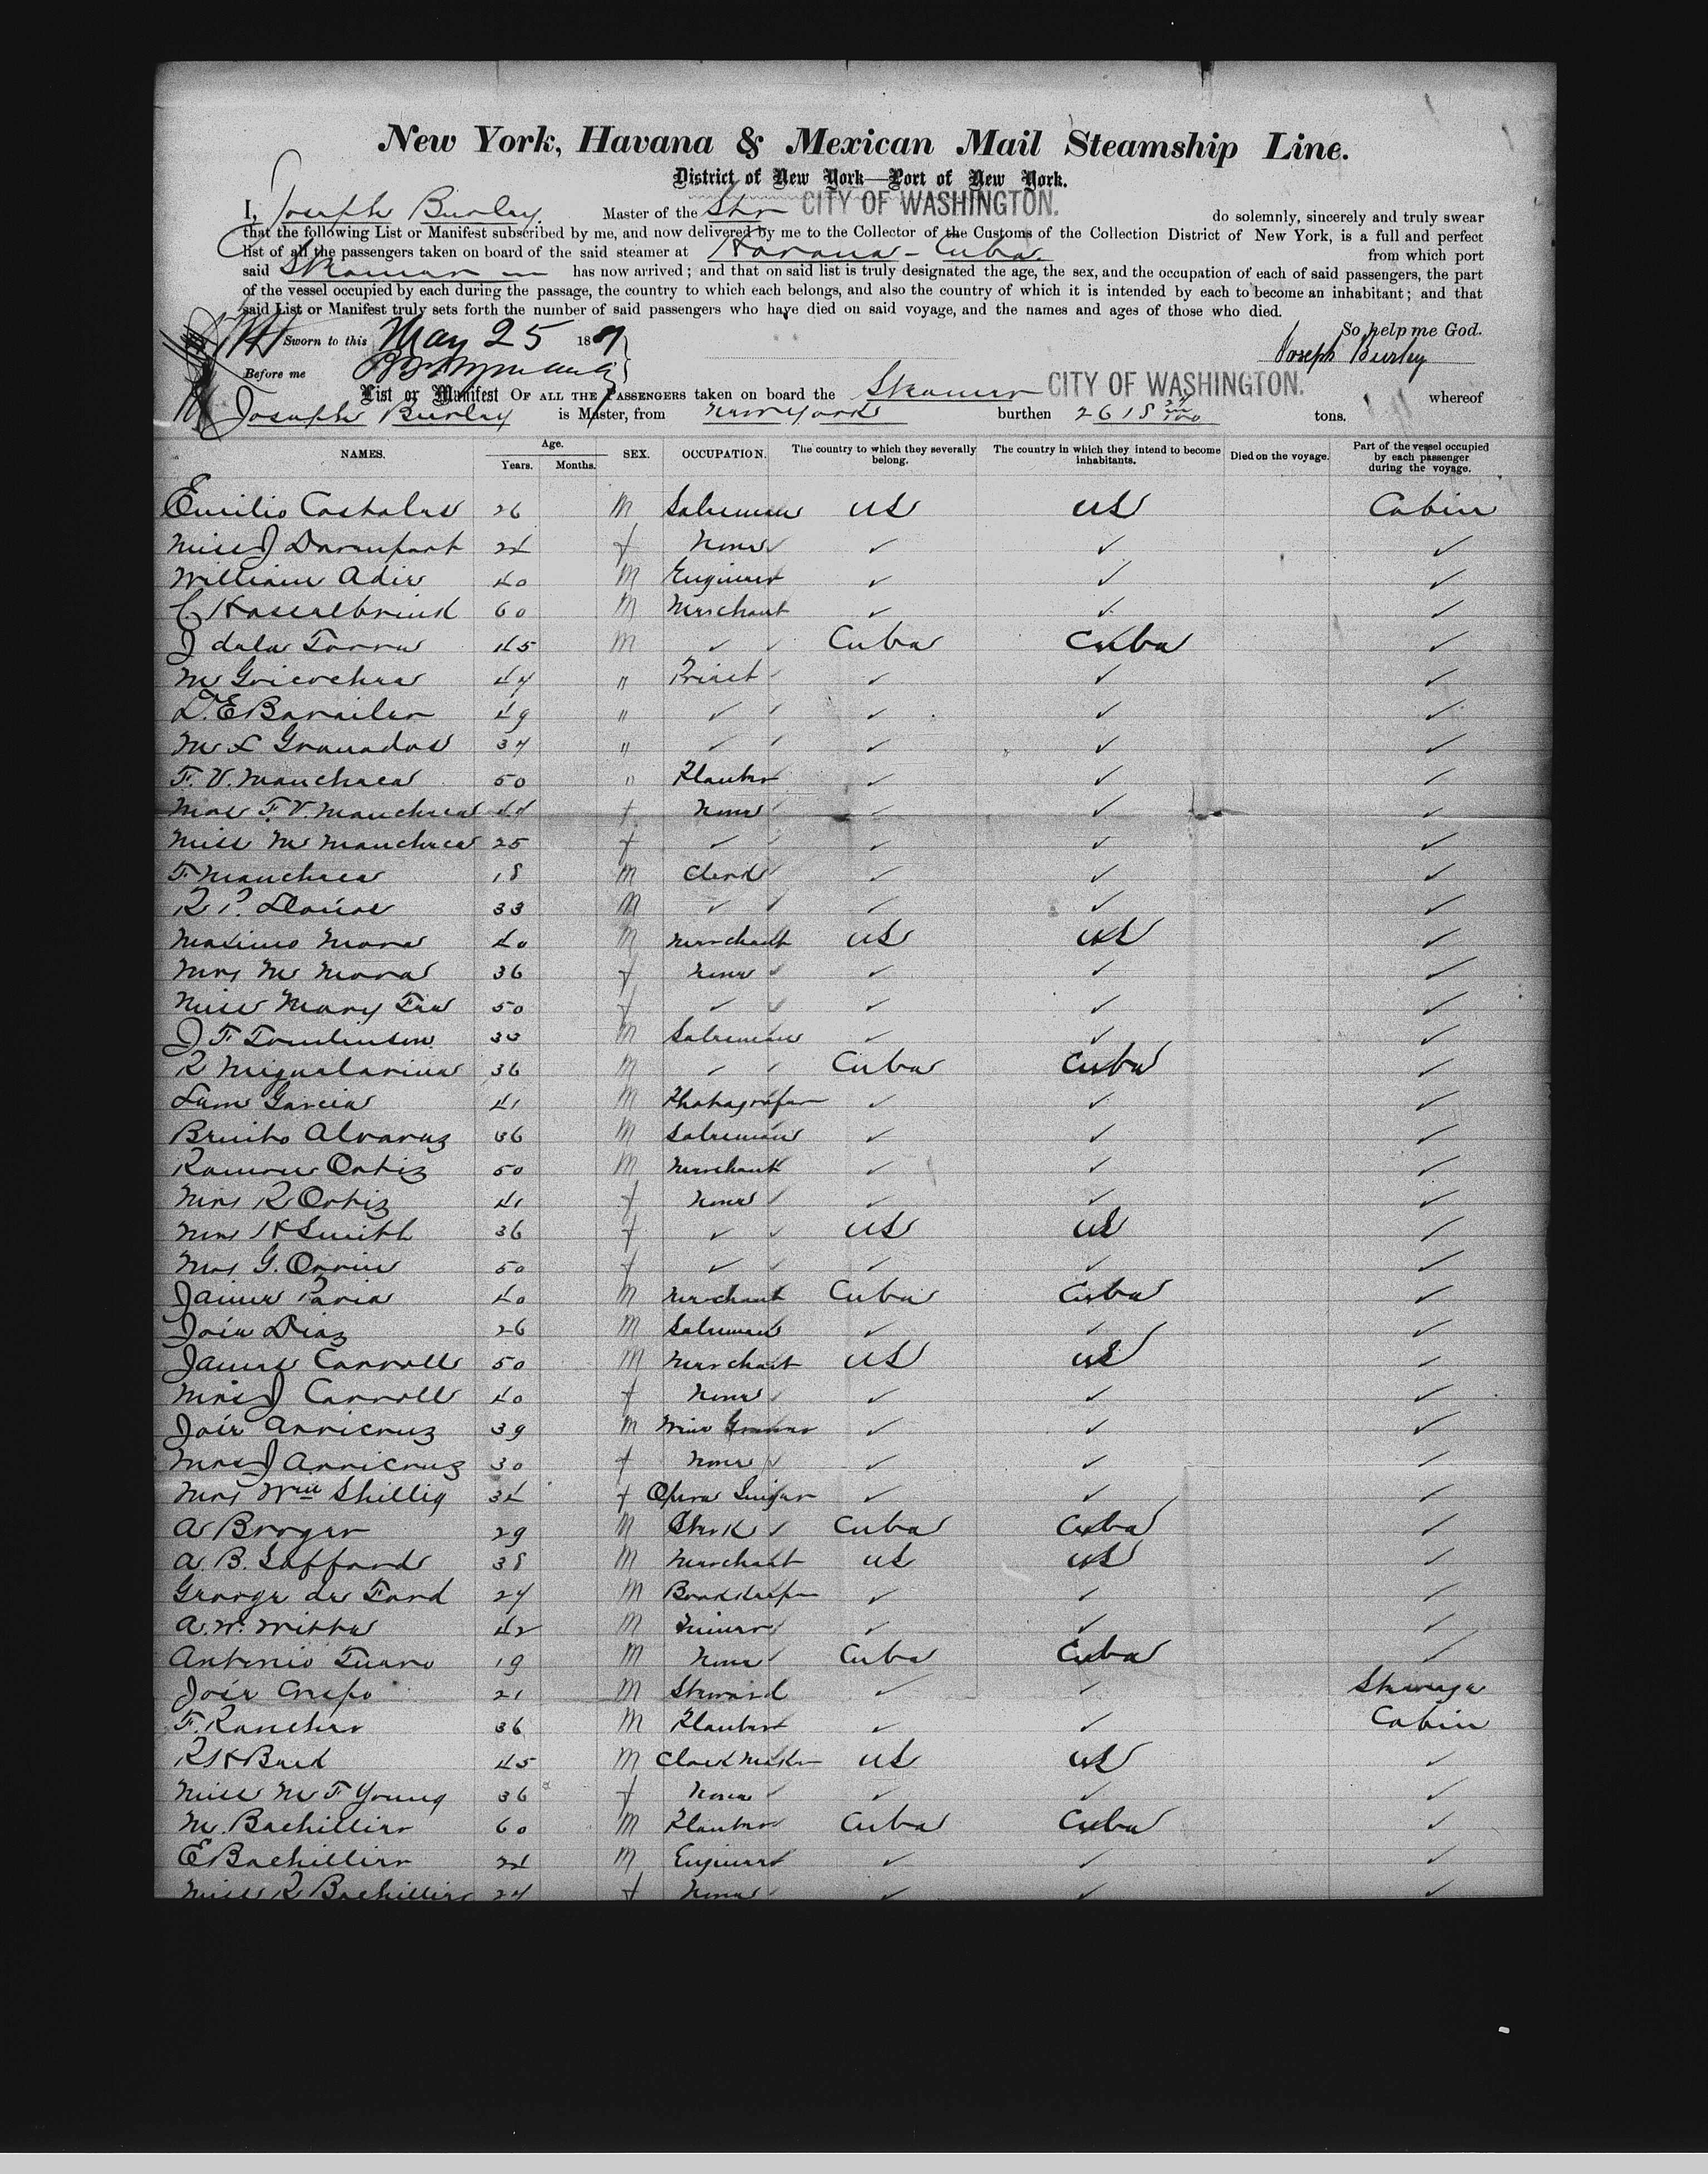 New York, Havana & Mexican Mail Steamship Line.
District of New York—Port of New York.
I, Joseph Burley Master of the Str CITY OF WASHINGTON. do solemnly, sincerely and truly swear
that the following List or Manifest subscribed by me, and now delivered by me to the Collector of the Customs of the Collection District of New York, is a full and perfect
list of all the passengers taken on board of the said steamer at Havana - Cuba. from which port
said Steamer has now arrived; and that on said list is truly designated the age, the sex, and the occupation of each of said passengers, the part
of the vessel occupied by each during the passage, the country to which each belongs, and also the country of which it is intended by each to become an inhabitant; and that
said List or Manifest truly sets forth the number of said passengers who have died on said voyage, and the names and ages of those who died.
So help me God.
Sworn to this May 25 18
Joseph Burley
Before me
List or Manifest OF ALL THE PASSENGERS taken on board the Steamer CITY OF WASHINGTON. whereof
Joseph Burley is Master, from New York burthen 2618 24/100 tons.
NAMES. Age. Years. Months. SEX. OCCUPATION. The country to which they severally belong. The country in which they intend to become inhabitants. Died on the voyage. Part of the vessel occupied by each passenger during the voyage.
Emilio 26 M Salesman US US Cabin
Miss J Davenport 24 f None ✓ ✓ ✓
William Adir 40 M Engineer ✓ ✓ ✓
C Hasselbrink 60 M Merchant ✓ ✓ ✓
J dela Torre 45 M ✓ ✓ Cuba Cuba ✓
M 47 " Priest ✓ ✓ ✓
49 " ✓ ✓ ✓ ✓ ✓
M L Granados 37 " ✓ ✓ ✓ ✓ ✓
F. V. Manchaca 50 " Planter ✓ ✓ ✓
Mrs F. V. Manchaca 44 f None ✓ ✓ ✓ ✓
Miss M Manchaca 25 f ✓ ✓ ✓ ✓
F Manchaca 18 M Clerk ✓ ✓ ✓
R P. 33 M ✓ ✓ ✓ ✓ ✓
Maximo Mora 40 M Merchant US US ✓
Mrs M Mora 36 f None ✓ ✓ ✓ ✓
Miss Mary 50 f ✓ ✓ ✓ ✓ ✓
J F Tomlinson 33 M Salesman ✓ ✓ ✓
R 36 M ✓ ✓ Cuba Cuba ✓
Garcia 41 M Photagrafer ✓ ✓ ✓
Benito Alvarez 36 M Salesman ✓ ✓ ✓
Ramon Ortiz 50 M Merchant ✓ ✓ ✓
Mrs R Ortiz 41 f None ✓ ✓ ✓ ✓
Mrs H Smith 36 f ✓ ✓ US US ✓
Mrs G. Orrin 50 f ✓ ✓ ✓ ✓
Jaime 40 M Merchant Cuba Cuba ✓
José Diaz 26 M Salesman ✓ ✓ ✓
James Carroll 50 M Merchant US US ✓
Mrs J Carroll 40 f None ✓ ✓ ✓
José Arricruz 39 M ✓ ✓ ✓
Mrs J Arricruz 30 f None ✓ ✓ ✓ ✓
Mrs Wm Shillig 34 f Opera Singer ✓ ✓ ✓
A 29 M Clerk ✓ Cuba Cuba ✓
A. B. Safford 38 M Merchant US US ✓
George de Ford 27 M Bookkeeper ✓ ✓ ✓
A. W. 42 M ✓ ✓ ✓
Antonio 19 M None Cuba Cuba ✓
José Crespo 21 M Steward ✓ ✓ Steerage
F. 36 M Planter ✓ ✓ Cabin
R H 45 M Clock Maker US US ✓
Miss M F Young 36 f None ✓ ✓ ✓ ✓
M. Bachiller 60 M Planter Cuba Cuba ✓
E Bachiller 24 M Engineer ✓ ✓ ✓
Miss R Bachiller 24 f None ✓ ✓ ✓ ✓